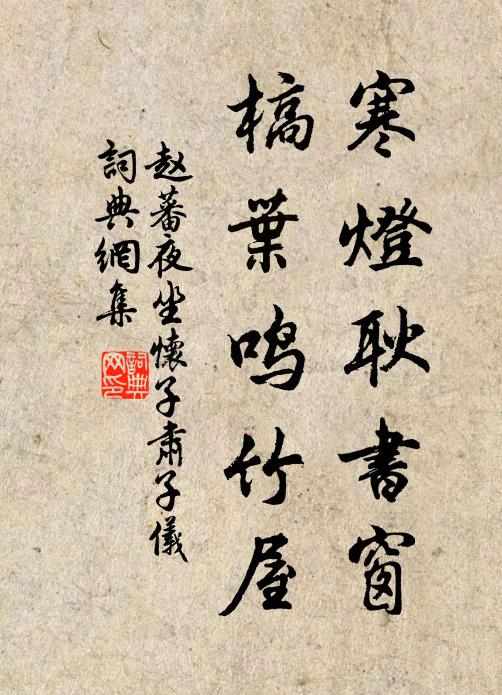 寒燈耿書窗
槁葉鸣竹屋
赵蕃夜坐懷子肅子儀
詞典網集
詞典网印